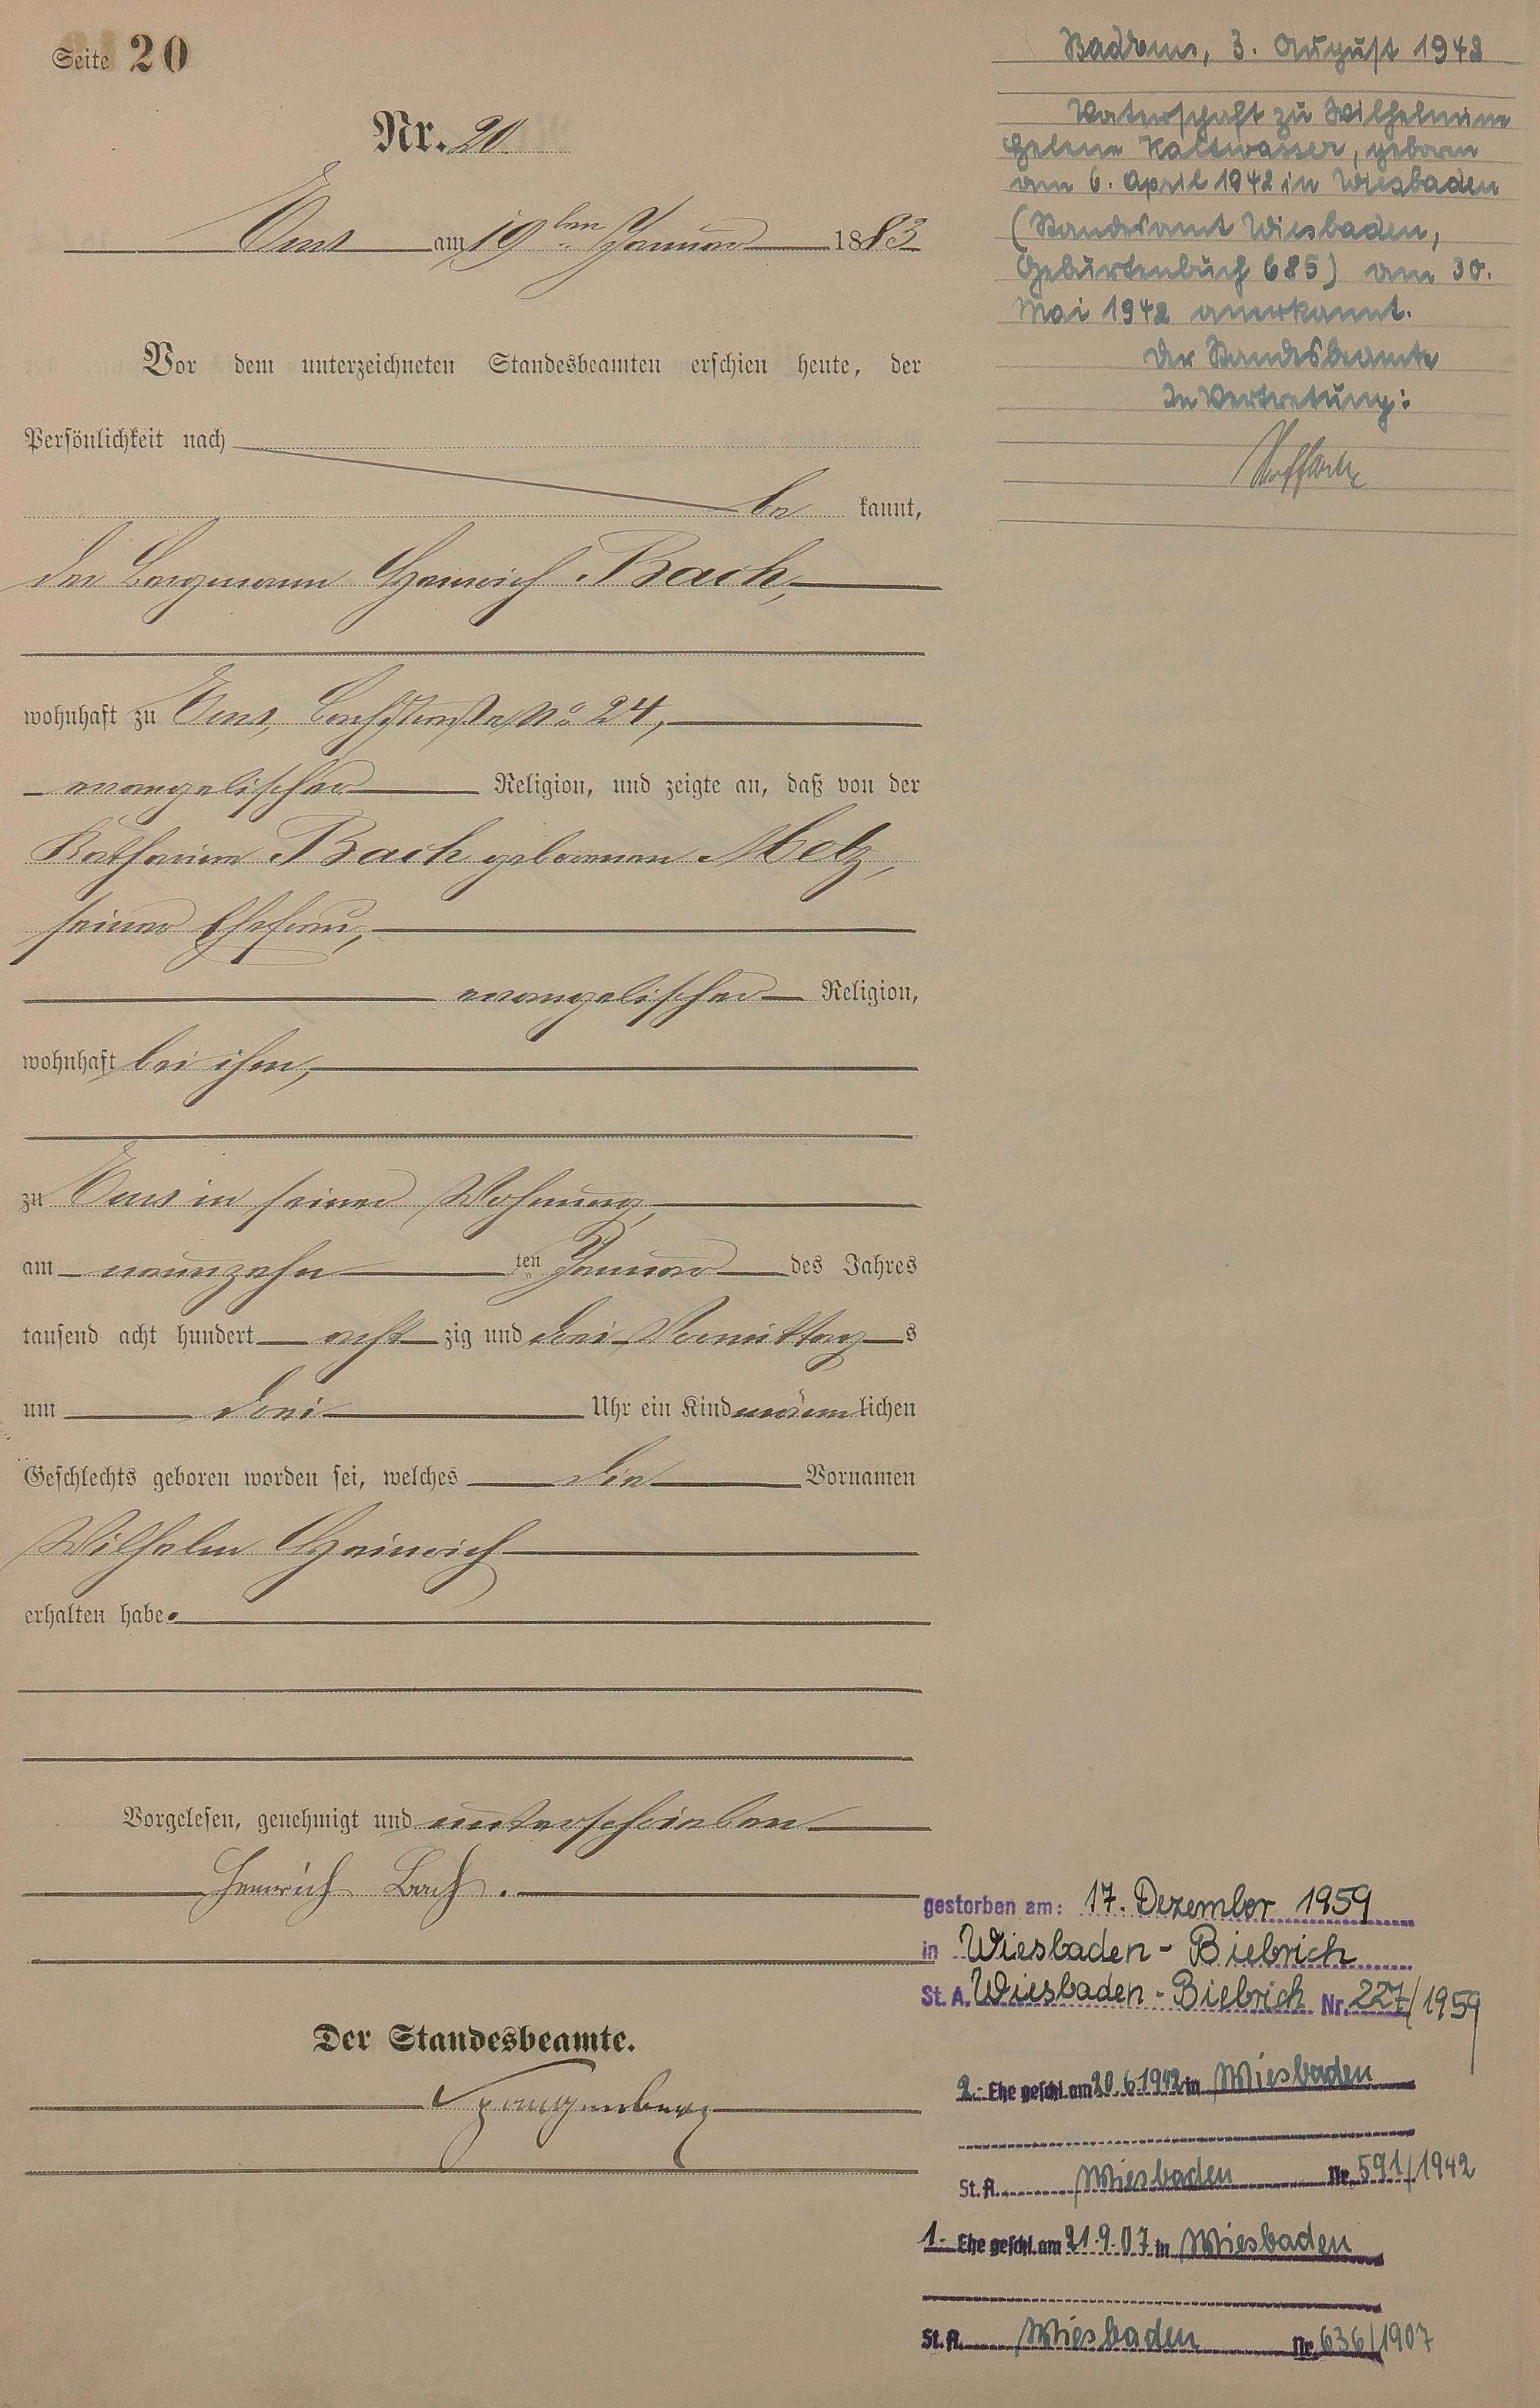 Seite 20
Nr. 20.
Ems am 19ten Januar 1883
Vor dem unterzeichneten Standesbeamten erschien heute, der
Persönlichkeit nach
be kannt,
der Bergmann Heinrich Bach,
wohnhaft zu Ems, No 24,
evangelischer Religion, und zeigte an, daß von der
Katharina Bach geborenen Metz,
seiner Ehefrau,
evangelischer Religion,
wohnhaft bei ihm,
zu Ems in seiner Wohnung,
am neunzehn ten Januar des Jahres
tausend acht hundert acht zig und drei Vormittag s
um drei Uhr ein Kind männ lichen
Geschlechts geboren worden sei, welches die Vornamen
Wilhelm Heinrich
erhalten habe.
Vorgelesen, genehmigt und unterschrieben
Heinrich Bach.
Der Standesbeamte.
Spangenberg
Bad Ems, 3. August 1942
Vaterschaft zu Wilhelmine
Helene Kaltwasser, geboren
am 6. April 1942 in Wiesbaden
(Standesamt Wiesbaden,
Geburtenbuch 685) am 30.
Mai 1942 anerkannt.
Der Standesbeamte
In Vertretung:
gestorben am: 17. Dezember 1959
in Wiesbaden-Biebrich
St. A. Wiesbaden-Biebrich Nr. 227/1959
2. Ehe geschl. am 20.6.1942 in Wiesbaden
St. A. Wiesbaden Nr. 591/1942
1. Ehe geschl. am 21.9.07 in Wiesbaden
St. A. Wiesbaden Nr. 636/1907